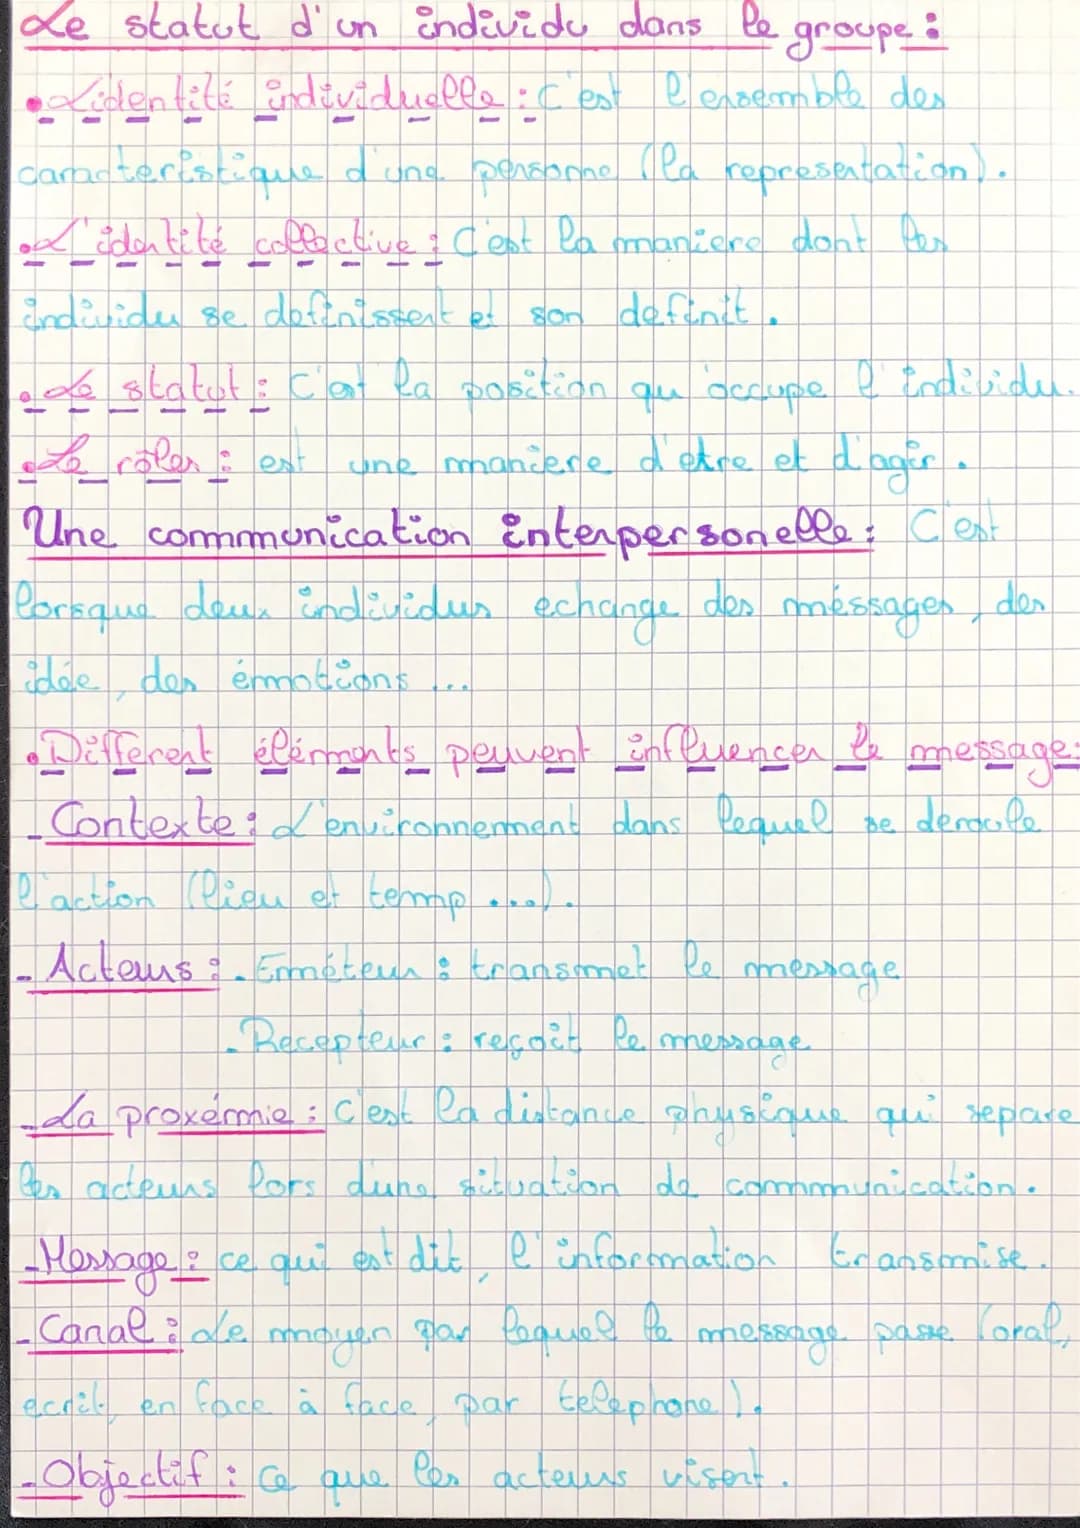 Le statut d'un individu dans le groupe :
• L'identité individuelle : C'est l'ensemble des
caracteristique d'une personne (la representation).
• L'identité collective : C'est la maniere dont les
individu se definissent et son definit.
• Le statut : C'est la position qu'occupe l'individu.
• Le rôles : est une maniere d'etre et d'agir.
Une communication interpersonelle : C'est
lorsque deux individus echange des méssages, des
idée, des émotions ...
• Different éléments peuvent influencer le message :
- Contexte : L'environnement dans lequel se deroule
l'action (lieu et temp ...).
- Acteurs : - Eméteur : transmet le message
- Recepteur : reçoit le message
- La proxémie : C'est la distance physique qui separe
les acteurs lors d'une situation de communication.
- Message : ce qui est dit, l'information transmise.
- Canal : Le moyen par lequel le message passe (oral,
ecrit, en face à face, par telephone).
- Objectif : Ce que les acteurs visent.